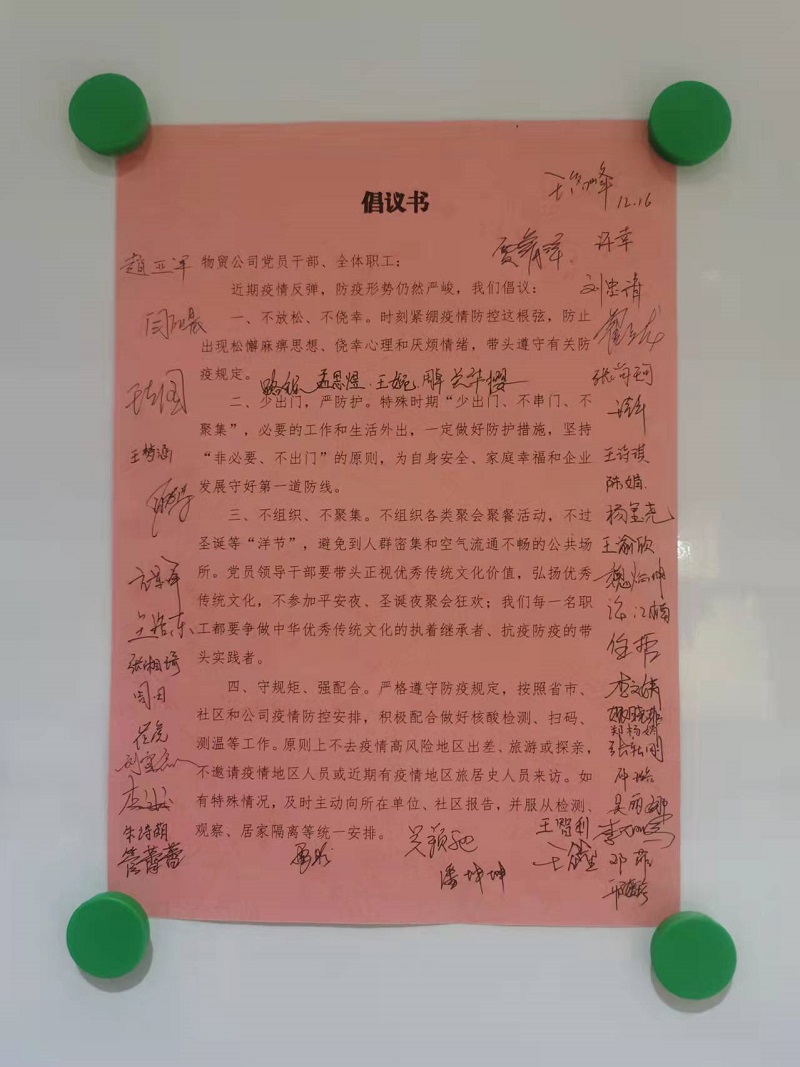 倡议书
12.16
物贸公司党员干部、全体职工：
近期疫情反弹，防疫形势仍然严峻，我们倡议：
一、不放松、不侥幸。时刻紧绷疫情防控这根弦，防止
出现松懈麻痹思想、侥幸心理和厌烦情绪，带头遵守有关防
疫规定。
二、少出门，严防护。特殊时期“少出门、不串门、不
聚集”，必要的工作和生活外出，一定做好防护措施，坚持
“非必要、不出门”的原则，为自身安全、家庭幸福和企业
发展守好第一道防线。
三、不组织、不聚集。不组织各类聚会聚餐活动，不过
圣诞等“洋节”，避免到人群密集和空气流通不畅的公共场
所。党员领导干部要带头正视优秀传统文化价值，弘扬优秀
传统文化，不参加平安夜、圣诞夜聚会狂欢；我们每一名职
工都要争做中华优秀传统文化的执着继承者、抗疫防疫的带
头实践者。
四、守规矩、强配合。严格遵守防疫规定，按照省市、
社区和公司疫情防控安排，积极配合做好核酸检测、扫码、
测温等工作。原则上不去疫情高风险地区出差、旅游或探亲，
不邀请疫情地区人员或近期有疫情地区旅居史人员来访。如
有特殊情况，及时主动向所在单位、社区报告，并服从检测、
观察、居家隔离等统一安排。
赵亚军
王梦涵
张湘琦
闫丹
崔虎
朱诗萌
管蕾蕾
孟思煜
许幸
刘忠靖
王诗琪
陈娟
杨玺尧
王渝欣
任哲
李文婧
郑杨娇
吴丽娜
邓菲
王智利
潘坤坤